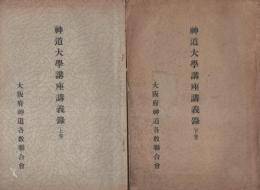 神道大學講座講義錄 上卷
大阪府神道各教聯合會
神道大學講座講義錄 下卷
大阪府神道各教聯合會